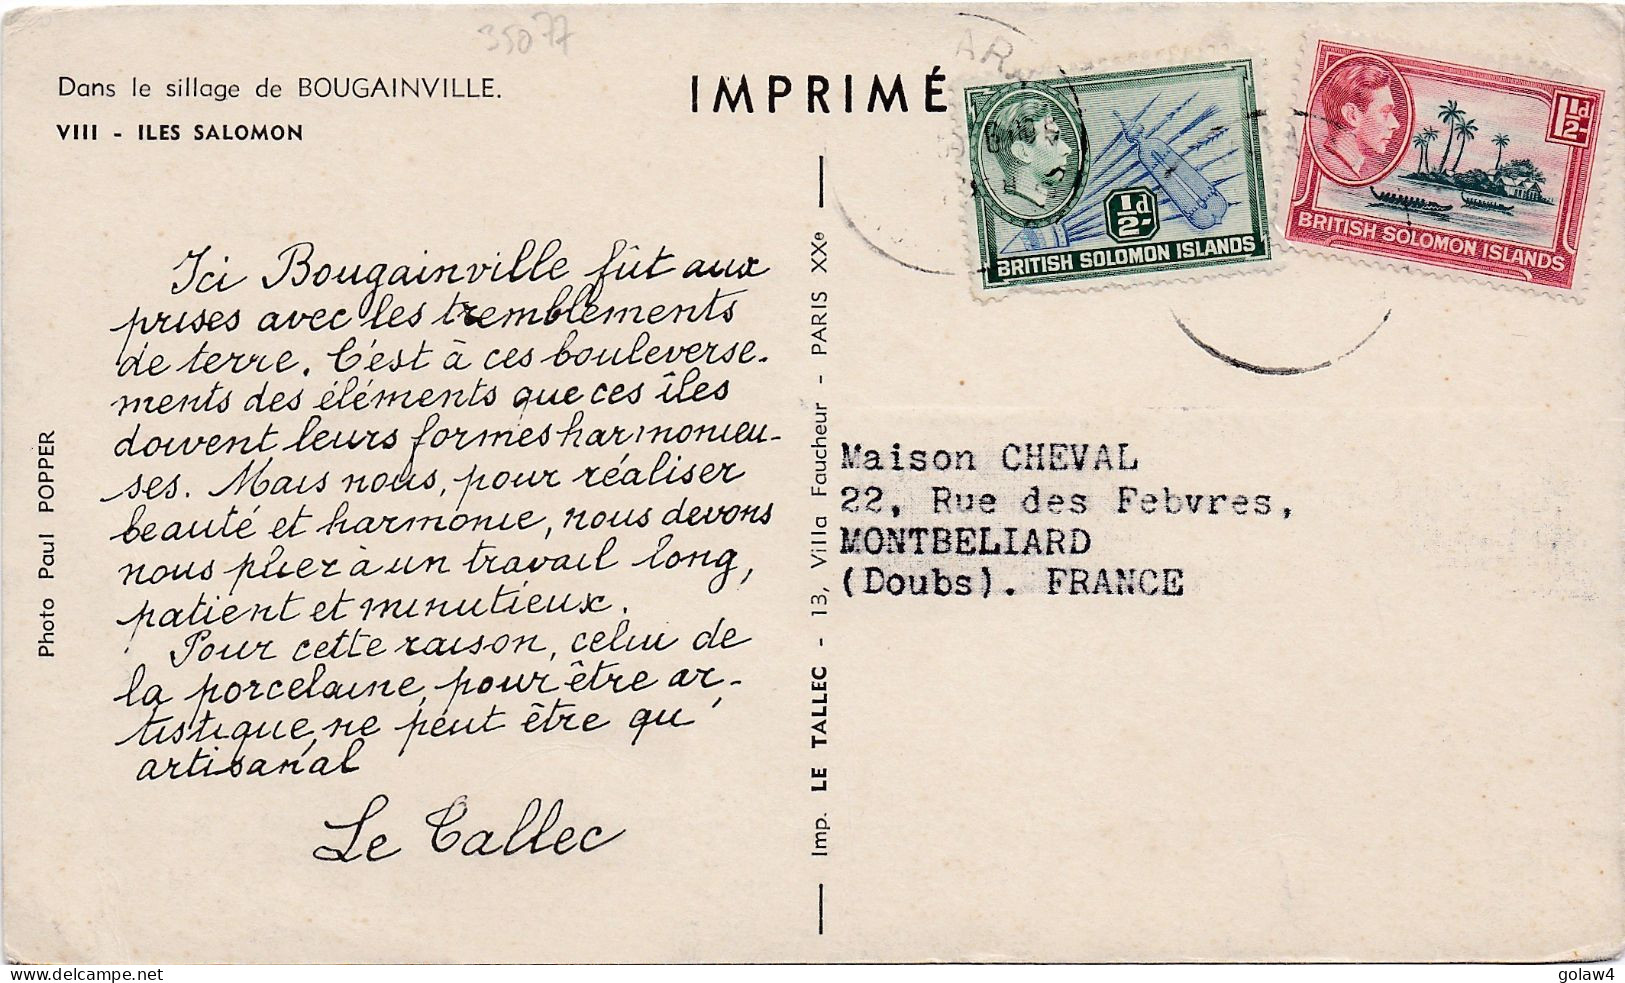 35077
Dans le sillage de BOUGAINVILLE.
VIII - ILES SALOMON
IMPRIMÉ
½d
BRITISH SOLOMON ISLANDS
1½d
BRITISH SOLOMON ISLANDS
Ici Bougainville fût aux
prises avec les tremblements
de terre. C'est à ces bouleverse-
ments des éléments que ces îles
doivent leurs formes harmonieu-
ses. Mais nous, pour réaliser
beauté et harmonie, nous devons
nous plier à un travail long,
patient et minutieux.
Pour cette raison, celui de
la porcelaine, pour être ar-
tistique, ne peut être qu'
artisanal
Le Tallec
Photo Paul POPPER
Imp. LE TALLEC - 13, Villa Faucheur - PARIS XXe
Maison CHEVAL
22, Rue des Febvres,
MONTBELIARD
(Doubs). FRANCE
www.delcampe.net
golaw4